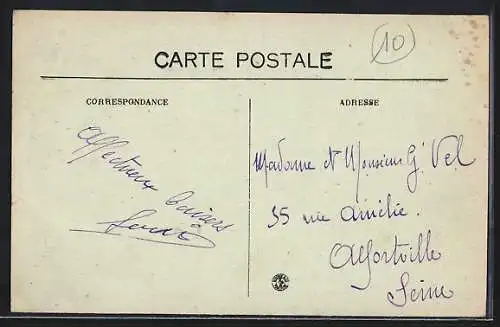 10
CARTE POSTALE
CORRESPONDANCE
ADRESSE
Affectueux
baisers
Madame et Monsieur G. Vel
35 rue Amélie.
Alfortville
Seine